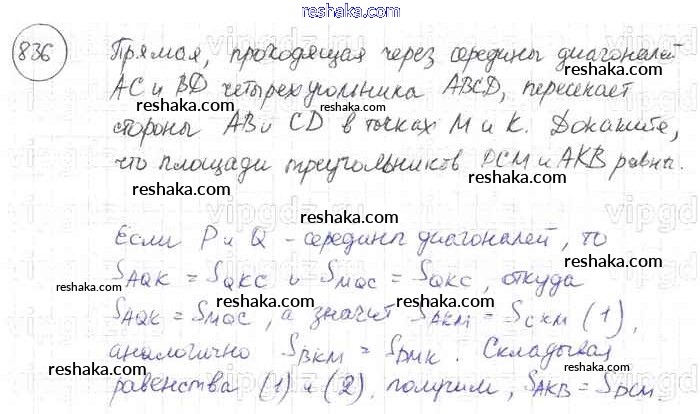 reshaka.com
836
Прямая, проходящая через середины диагоналей
AC и BD четырехугольника ABCD, пересекает
reshaka.com reshaka.com reshaka.com
стороны AB и CD в точках M и K. Докажите,
что площади треугольников DCM и AKB равны.
reshaka.com reshaka.com reshaka.com
Если P и Q - середины диагоналей, то
reshaka.com
S AQK = S QKC и S MQC = S QKC, откуда
reshaka.com reshaka.com
S AQK = S MQC, а значит S AKM = S CKM (1),
reshaka.com reshaka.com
аналогично S BKM = S DMK. Складывая
reshaka.com
равенства (1) и (2) получим, S AKB = S DCM.
reshaka.com reshaka.com reshaka.com